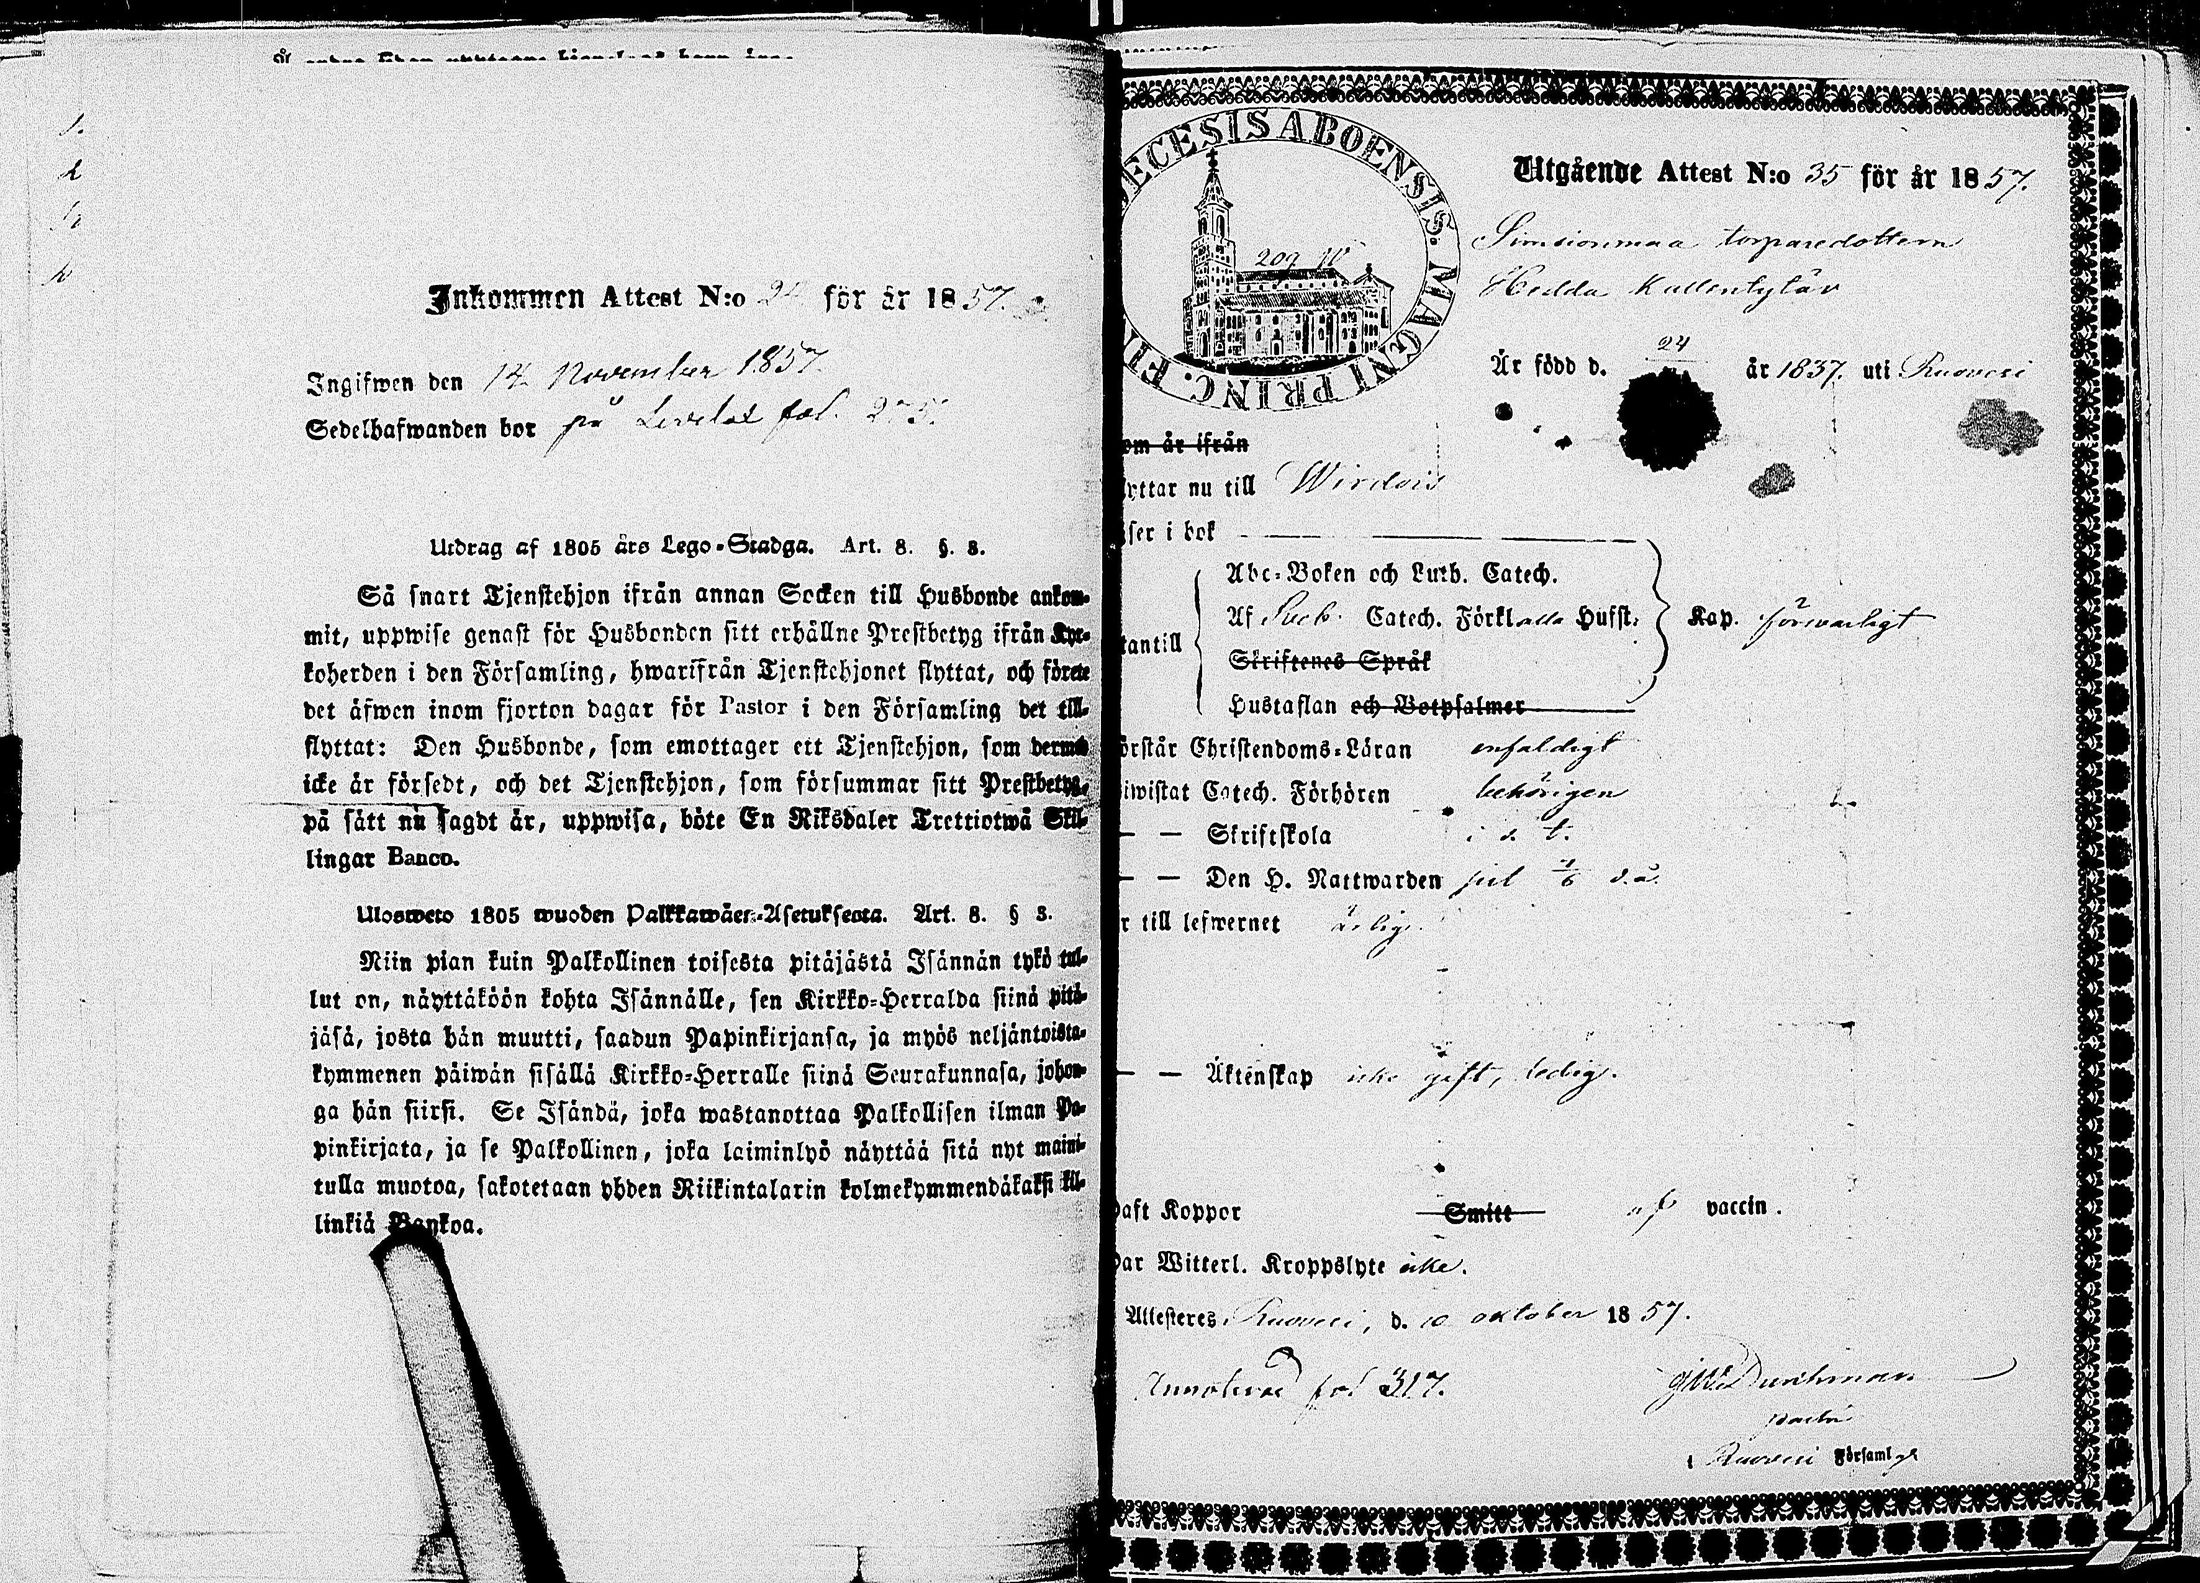 Inkommen Attest N:o 24 för år 1857.
Ingifwen den 14 November 1857.
Sedelhafwanden bor på fol. 275.
Utdrag af 1805 års Lego-Stadga. Art. 8. §. 8.
Så snart Tjenstehjon ifrån annan Socken till Husbonde ankom-
mit, uppwise genast för Husbonden sitt erhållne Prestbetyg ifrån Kyr-
koherden i den Församling, hwarifrån Tjenstehjonet flyttat, och förete
det äfwen inom fjorton dagar för Pastor i den Församling det till-
flyttat: Den Husbonde, som emottager ett Tjenstehjon, som dermed
icke är försedt, och det Tjenstehjon, som försummar sitt Prestbetyg,
på sätt nu sagdt är, uppwisa, böte En Riksdaler Trettiotwå Skil-
lingar Banco.
Ulosweto 1805 wuoden Palkkawäen-Asetuksesta. Art. 8. § 8.
Niin pian kuin Palkollinen toisesta pitäjästä Isännän tykö tul-
lut on, näyttäköön kohta Isännälle, sen Kirkko-Herralda siinä pitä-
jäsä, josta hän muutti, saadun Papinkirjansa, ja myös neljäntoista-
kymmenen päiwän sisällä Kirkko-Herralle siinä Seurakunnasa, johon-
ga hän siirsi. Se Isändä, joka wastanottaa Palkollisen ilman Pa-
pinkirjata, ja se Palkollinen, joka laiminlyö näyttää sitä nyt maini-
tulla muotoa, sakotetaan yhden Riikintalarin kolmekymmendäkaksi kil-
linkiä Bankoa.
ECESIS ABOENSIS. MAGNI PRINC. FI
209
Utgående Attest N:o 35 för år 1857.
Simsionmaa torparedottern
Hedda Kallentytär
Är född d. 24 år 1837. uti Ruovesi
om är ifrån
lyttar nu till Wirdois
äser i bok
Abc-Boken och Luth. Catech.
Af Sveb. Catech. Förkl alla Husst.
tantill
Kap. försvarligt
Skriftenes Språk
Hustaflan och Botpsalmer
örstår Christendoms-Läran enfaldigt
iwistat Catech. Förhören behörigen
— — Skriftskola
— — Den H. Nattwarden
r till lefwernet ärlig.
— — Äktenskap icke gift, ledig.
aft Koppor Smitt af vaccin.
ar Witterl. Kroppslyte icke.
Attesteres Ruovesi, d. 10 oktober 1857.
fol 317.
Ruovesi Församlg